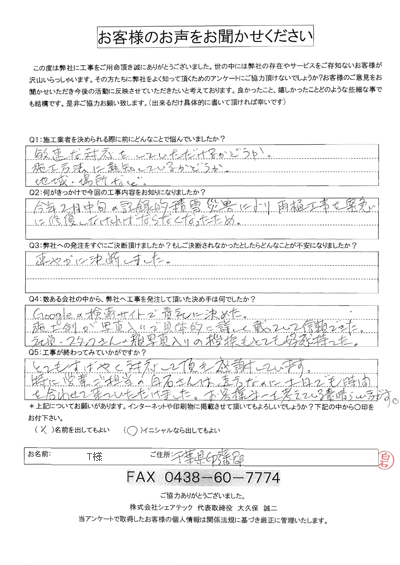 お客様のお声をお聞かせください
この度は弊社に工事をご用命頂き誠にありがとうございました。世の中には弊社の存在やサービスをご存知ないお客様が
沢山いらっしゃいます。その方たちに弊社をよく知って頂くためのアンケートにご協力頂けないでしょうか?お客様のご意見をお
聞かせいただき今後の活動に反映させていただきたいと考えております。良かったこと、嬉しかったことどのような些細な事で
も結構です。是非ご協力お願い致します。(出来るだけ具体的に書いて頂ければ幸いです)
Q1:施工業者を決められる際に前にどんなことで悩んでいましたか?
敏速な対応をしていただけるかどうか。
施工方法に熟知しているかどうか。
地域・場所など。
Q2:何がきっかけで今回の工事内容をお知りになりましたか?
今年2月中旬の記録的積雪災害により雨樋工事を緊急
に修復しなければならなくなったため。
Q3:弊社への発注をすぐにご決断頂けましたか?もしご決断されなかったとしたらどんなことが不安になりましたか?
速やかに決断しました。
Q4:数ある会社の中から、弊社へ工事を発注して頂いた決め手は何でしたか?
Googleの検索サイトで最初に決めた。
施工例が写真入りで具体的に詳しく載っていて信頼できた。
社長・スタッフさんの顔写真入りの挨拶もとても好感持てた。
Q5:工事が終わってみていかがですか?
とてもすばやく対応して頂き感謝しています。
特に営業ご担当の白石さんは、
を合わせて来ていただけました。お客様
*上記についてお願いがあります。インターネットや印刷物に掲載させて頂いてもよろしいでしょうか?下記の中から○印をお付
お付下さい。
( )名前を出してもよい (○)イニシャルなら出してもよい
お名前: T様 ご住所: 千葉県印旛郡
白石
FAX 0438-60-7774
ご協力ありがとうございました。
株式会社シェアテック 代表取締役 大久保 誠二
当アンケートで取得したお客様の個人情報は関係法規に基づき厳正に管理いたします。